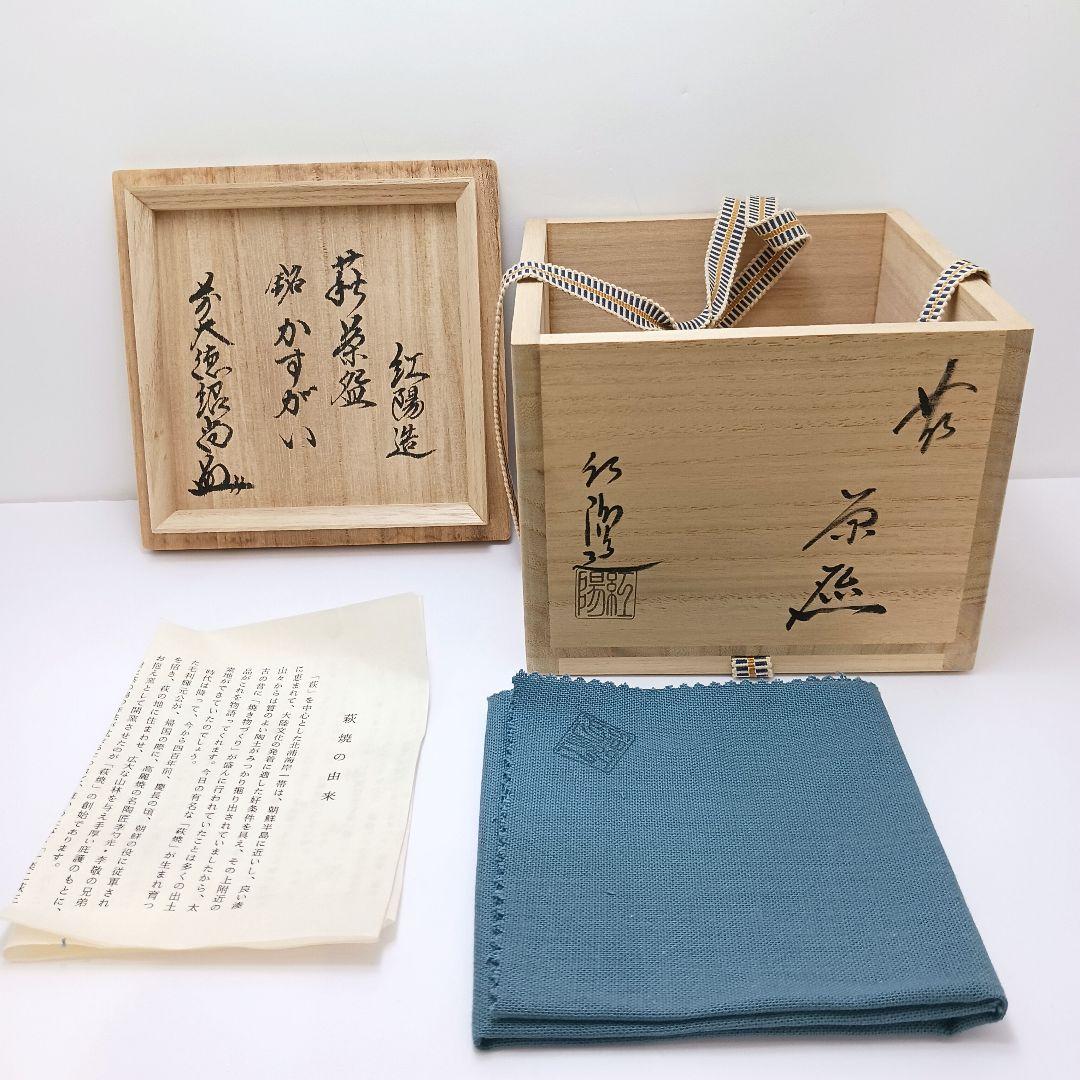 紅陽造
萩茶盌
銘 かすがい
前大徳紹尚
萩
茶碗
紅陽造
紅陽
萩焼の由来
「萩」を中心とした北浦海岸一帯は、朝鮮半島に近いし、良い湊
に恵まれて、大陸文化の発着に適した好条件を具え、その上附近の
山々からは質のよい陶土がみつかり掘り出されていましたから、太
古の昔に「焼き物づくり」が盛んに行われていたことは多くの出土
品がこれを物語ってくれます。今日の有名な「萩焼」が生まれ育つ
素地ができていたのでしょう。
時代は降って、今から四百年前、慶長の頃、朝鮮の役に従軍され
た毛利輝元公が、帰国の際に、高麗焼の名陶匠李勺光・李敬の兄弟
を招き、萩の地に住まわせ、広大な山林を与え手厚い庇護のもとに、
お抱え窯として開窯させたのが「萩焼」の創始であります。